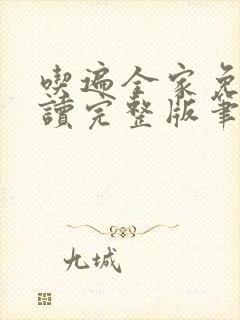 喫遍全家免
讀完整版筆
九城